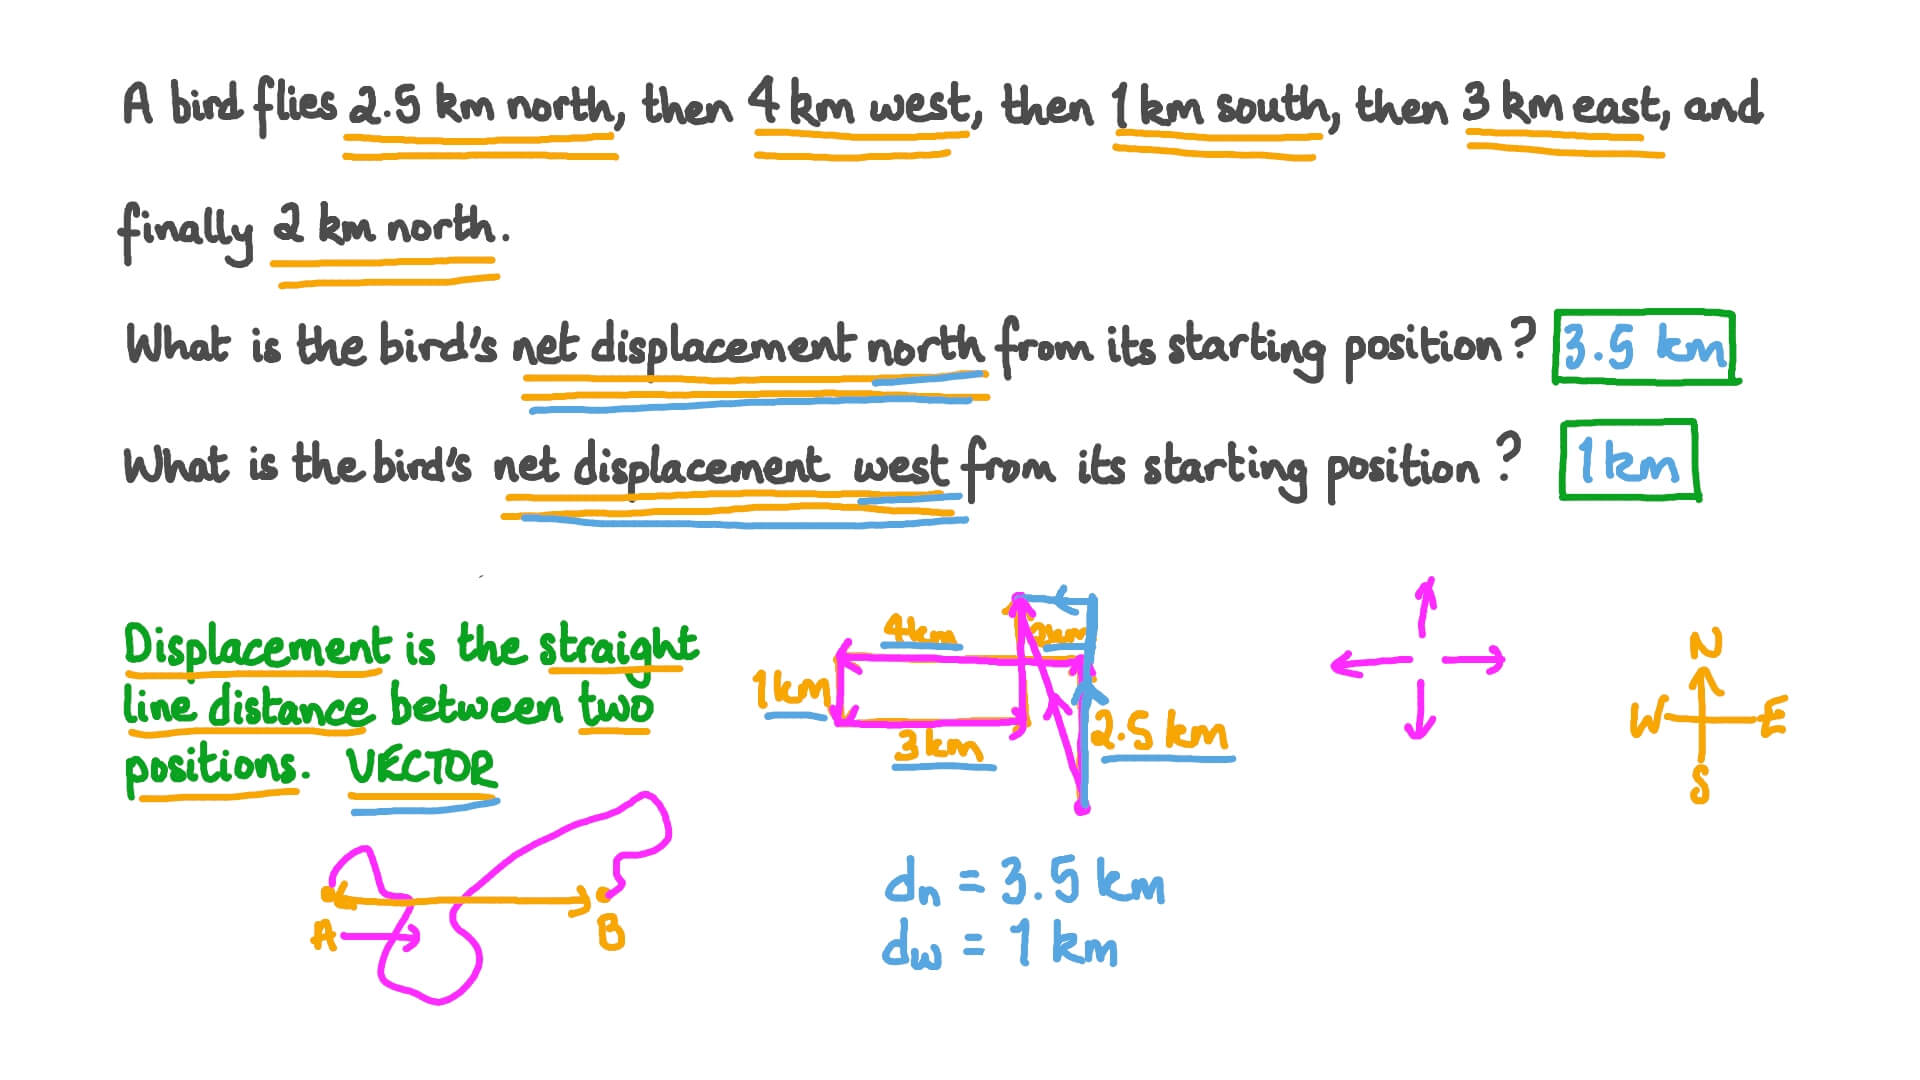 A bird flies 2.5 km north, then 4 km west, then 1 km south, then 3 km east, and
finally 2 km north.
What is the bird's net displacement north from its starting position? 3.5 km
What is the bird's net displacement west from its starting position? 1 km
Displacement is the straight
line distance between two
positions. VECTOR
A
B
4km
2km
1km
3km
2.5 km
dn = 3.5 km
dw = 1 km
N
W
E
S